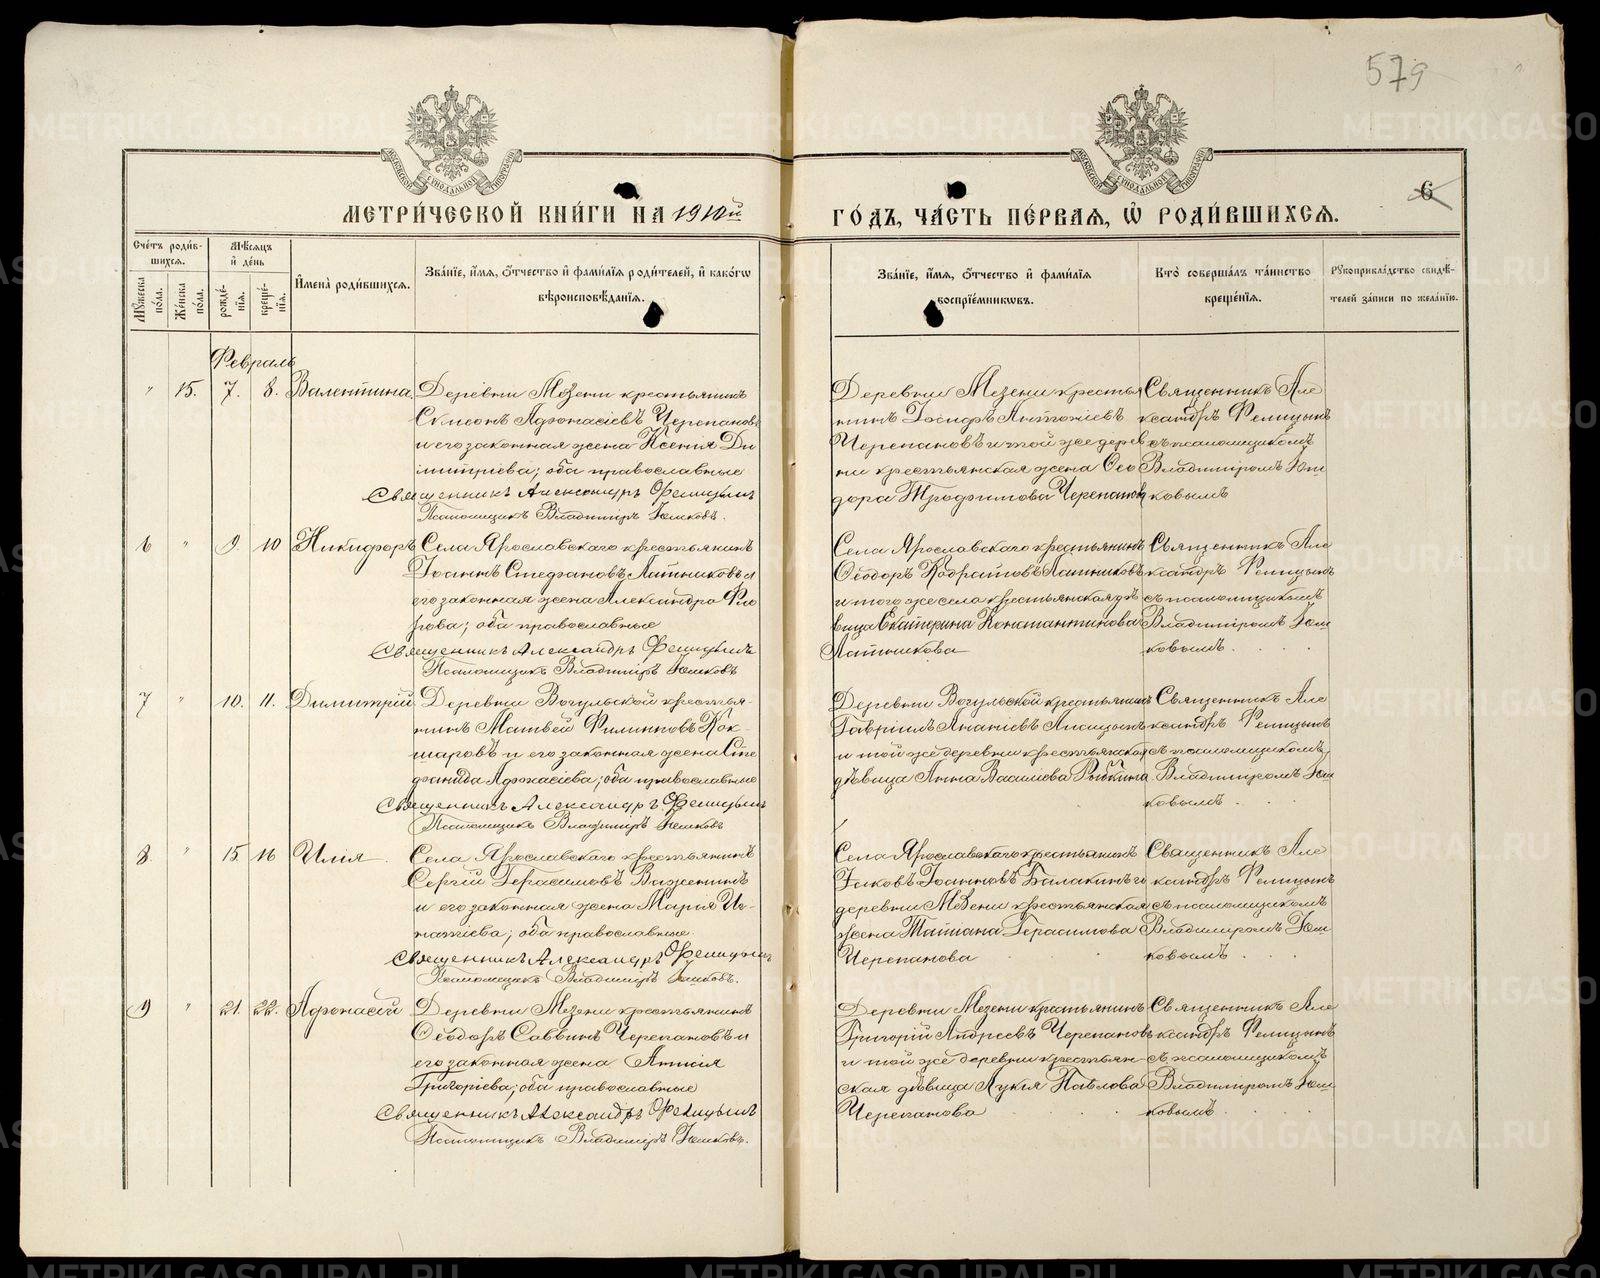 579
6
МОСКОВСКОЙ СѴНОДАЛЬНОЙ ТИПОГРАФІИ
МОСКОВСКОЙ СѴНОДАЛЬНОЙ ТИПОГРАФІИ
МЕТРИ́ЧЕСКОЙ КНИ́ГИ НА 1910й
ГО́ДЪ, ЧА́СТЬ ПЕ́РВАЯ, Ѡ҆ РОДИ́ВШИХСЯ.
Сче́тъ роди́в-
шихся.
Мꙋжеска по́ла.
Же́нска по́ла.
Мѣ́сяцъ
и҆ де́нь
рожде́-
нїя.
креще́-
нїя.
И҆мена̀ роди́вшихся.
Зва́нїе, и҆́мя, ѻ҆́тчество и҆ фами́лїя роди́телей, и҆ како́гѡ
вѣроисповѣ́данїя.
Зва́нїе, и҆́мя, ѻ҆́тчество и҆ фами́лїя
воспрїе́мниковъ.
Кто̀ соверша́лъ та́инство
креще́нїя.
Рꙋкоприкла́дство свидѣ́-
телей за́писи по жела́нїю.
Февраль
" 15. 7. 8. Валентина.
Деревни Мезени крестьянинъ
Симеонъ Афонасіевъ Черепановъ
и его законная жена Ксенія Ди
митріева; оба православные
Священникъ Александръ Фелицынъ
Псаломщикъ Владиміръ Юшковъ.
Деревни Мезени крестья
нинъ Іосифъ
Черепановъ и той же дерев
ни крестьянская жена Ѳео
дора Трофимова Черепанова
Священникъ Але
ксандръ Фелицынъ
съ псаломщикомъ
Владиміромъ Юш
ковымъ
6 " 9. 10 Никифоръ
Села Ярославскаго крестьянинъ
Іоаннъ Стефановъ Латниковъ и
его законная жена Александра Фло
рова; оба православные
Священникъ Александръ Фелицынъ
Псаломщикъ Владиміръ Юшковъ
Села Ярославскаго крестьянинъ
Ѳеодоръ Кодратовъ
и того же села крестьянская дѣ
вица Екатерина Константинова
Священникъ Але
ксандръ Фелицынъ
съ псаломщикомъ
Владиміромъ Юш
ковымъ.
7 " 10. 11. Димитрій
Деревни Вогульской крестья-
нинъ Матвей Филиповъ Кок-
шаровъ и его законная жена Сте
фанида Афонасіева; оба православные
Священникъ Александръ Фелицынъ
Псаломщикъ Владиміръ Юшковъ
Деревни Вогульской крестьянинъ
Гавріилъ Ананіевъ
и той же деревни крестьянская
дѣвица Анна Василіева Рыбкина
Священникъ Але
ксандръ Фелицынъ
съ псаломщикомъ
Владиміромъ Юш
ковымъ.
8. " 15 16 Илія.
Села Ярославскаго крестьянинъ
Сергій Герасимовъ Важенинъ
и его законная жена Марія Иг-
натіева; оба православные.
Священникъ Александръ Фелицынъ
Псаломщикъ Владиміръ Юшковъ.
Села Ярославскаго крестьянинъ
Іаковъ Іоанновъ Балакинъ и
деревни Мезени крестьянская
жена Татіана Герасимова
Черепанова
Священникъ Але
ксандръ Фелицынъ
съ псаломщикомъ
Владиміромъ Юш
ковымъ
9 " 21. 22. Афонасій
Деревни Мезени крестьянинъ
Ѳеодоръ Саввинъ Черепановъ и
его законная жена Анисія
Григоріева; оба православные
Священникъ Александръ Фелицынъ
Псаломщикъ Владиміръ Юшковъ.
Деревни Мезени крестьянинъ
Григорій Андреевъ Черепановъ
и той же деревни крестьян-
ская дѣвица Лукія Павлова
Черепанова
Священникъ Але
ксандръ Фелицынъ
съ псаломщикомъ
Владиміромъ Юш
ковымъ
METRIKI.GASO-URAL.RU